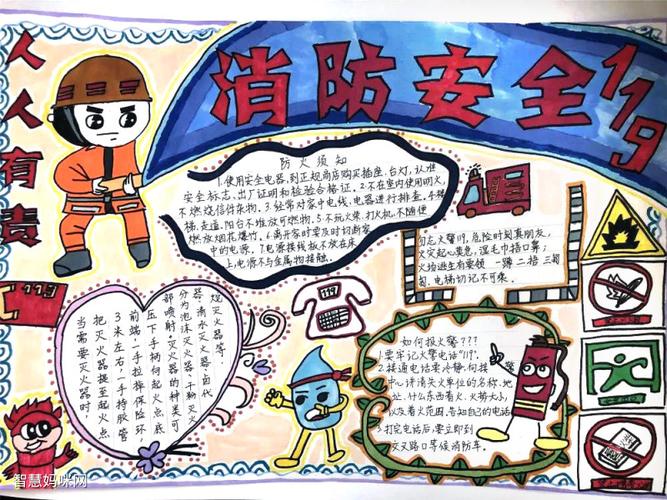 人人有责
消防安全119
防火须知
1.使用安全电器,到正规商店购买插座,台灯,认准
安全标志,出厂证明和检验合格证。2.不在室内使用明火,
不燃烧信件杂物。3.经常对家中电线,电器进行排查。4.楼
梯、走道、阳台不堆放可燃物。5.不玩火柴、打火机,不随便
燃放烟花爆竹。6.离开家时要及时切断家
中的电源。7.电源接线板不放在床
上,电源不与金属物接触。
勿忘火警119,危险时刻真朋友,
火灾起心莫急,湿毛巾捂口鼻;
火场逃生有要领 一蹲二捂三匍
匐,电梯切记不可乘。
119
119
当需要灭火器时,
把灭火器提至起火点
3米左右,一手持胶管
前端,一手拉掉保险环,
压下手柄向起火点底
部喷射。灭火器的种类可
分为泡沫灭火器、干粉灭火
器、清水灭火器、卤代
烷灭火器等。
如何报火警???
1.要牢记火警电话"119"。
2.接通电话要冷静,向接
中心讲清失火单位的名称、地
址、什么东西着火、火势大小,
以及着火范围,告知自己的电话
3.打完电话后,要立即到
交叉路口等候消防车。
智慧妈咪网